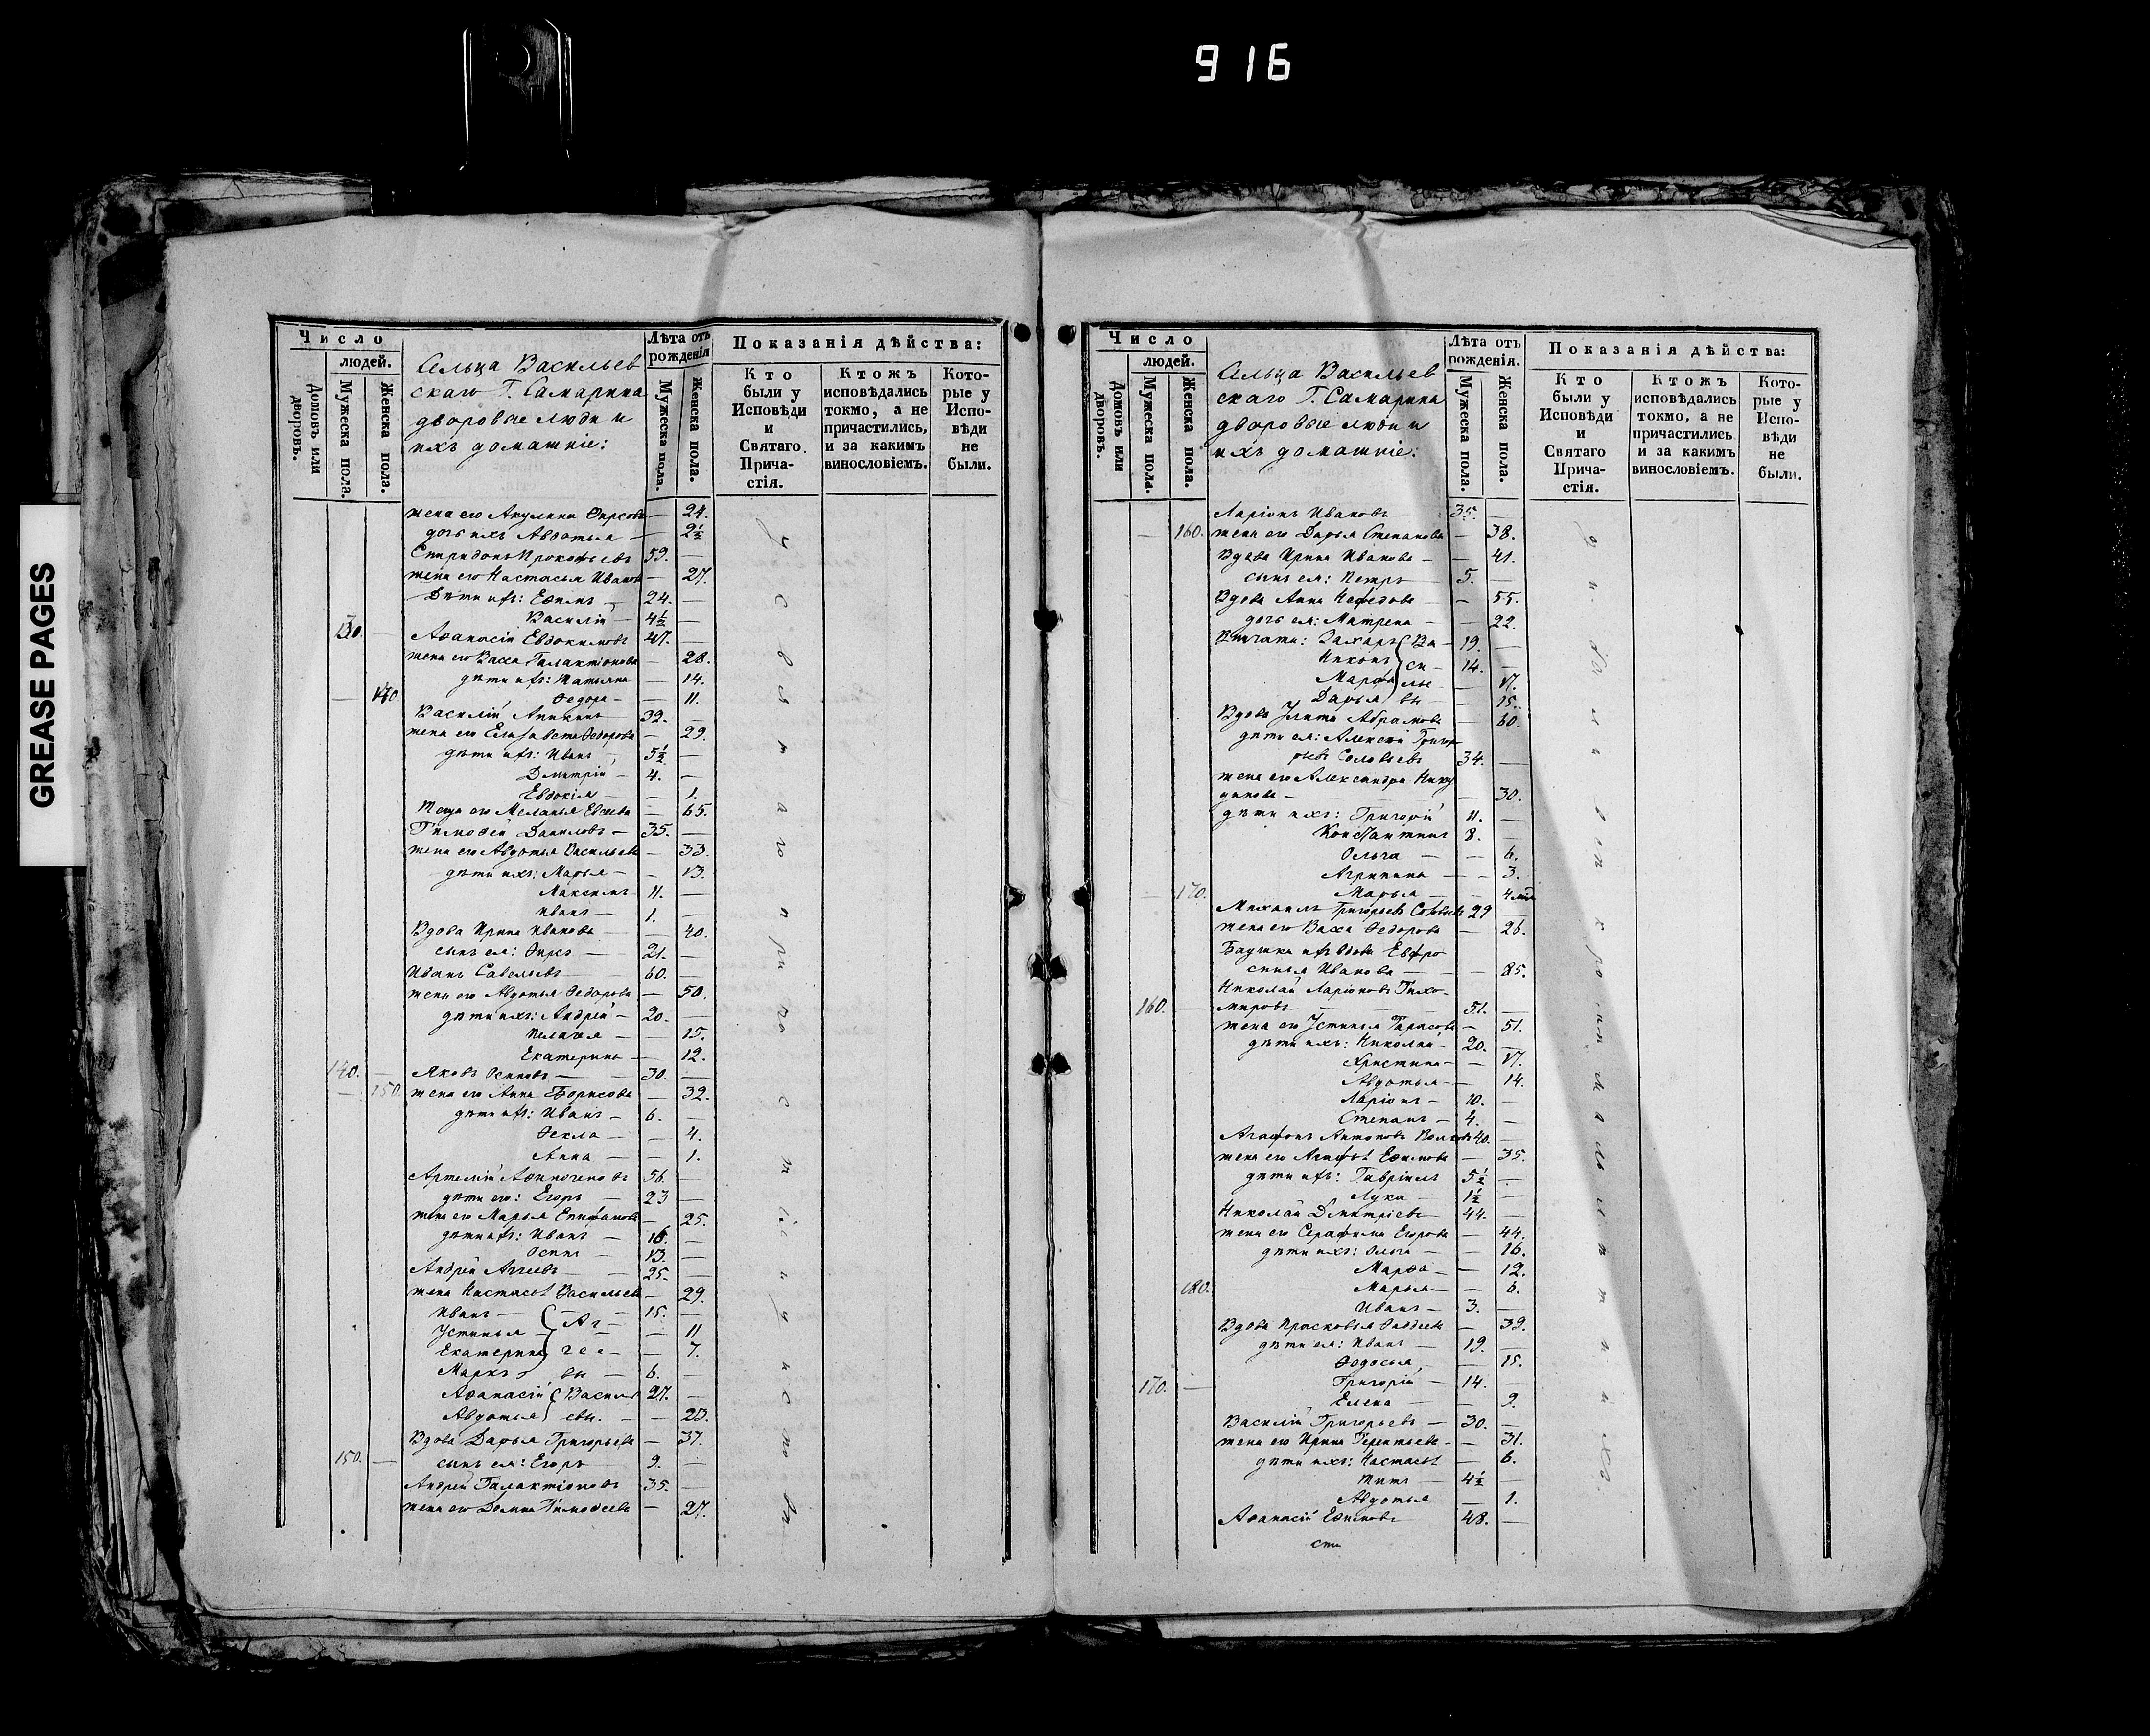 916
GREASE PAGES
Число
людей.
Домовъ или дворовъ.
Мужеска пола.
Женска пола.
Сельца Васильев
скаго Г. Самарина
дворовые люди и
ихъ домашніе:
Лѣта отъ
рожденія
Мужеска пола.
Женска пола.
Показанія дѣйства:
Кто
были у
Исповѣди
и
Святаго
Прича-
стія.
Ктожъ
исповѣдались
токмо, а не
причастились,
и за какимъ
винословіемъ.
Кото-
рые у
Испо-
вѣди
не
были.
жена его Акулина Фирсова — 24.
дочь ихъ Авдотья — 2½
Спиридонъ Прокофьевъ 59. —
жена его Настасья Иванова — 27.
Дѣти ихъ: Ефимъ — 24. —
Василій — 4½ —
130. — Аѳанасій Евдокимовъ 47. —
жена его Васса Галактіонова — 28.
дѣти ихъ: Татьяна — 14.
— 140 Ѳедора — 11.
Василій Аникинъ 32. —
жена его Елизавета Ѳедорова — 29.
дѣти ихъ: Иванъ — 5½ —
Дмитрій — 4. —
Евдокія — — 1.
Теща его Меланья Евсеева — 65.
Тимоѳей Даниловъ — 35. —
жена его Авдотья Васильева — 33.
дѣти ихъ: Марья — — 13.
Максимъ 11. —
Иванъ — 1. —
Вдова Ирина Иванова — — 40.
сынъ ея: Фирсъ — 21. —
Иванъ Савельевъ — 60. —
жена его Авдотья Ѳедорова — 50.
дѣти ихъ: Андрей — 20. —
Пелагея — — 15.
Екатерина — — 12.
140. — Яковъ Осиповъ — 30. —
— 150. жена его Анна Борисова — 32.
дѣти ихъ: Иванъ — 6. —
Ѳекла — — 4.
Анна — — 1.
Артемій Аѳиногеновъ 56. —
дѣти его: Егоръ — 23 —
жена его Марья Епифанова — 25.
дѣти ихъ: Иванъ — 16. —
Осипъ — 13. —
Андрей Аггеевъ — 25. —
жена Настасья Васильева — 29.
Иванъ — Аг- 15. —
Устинья — — 11
Екатерина гее- — 7.
Маркъ вы — 6. —
Аѳанасій Василь 27. —
Авдотья евы. — — 23.
Вдова Дарья Григорьева — 37.
150. — сынъ ея: Егоръ 9. —
Андрей Галактіоновъ 35. —
жена его Домна Тимоѳеева — 27.
у с в я т а го п ри ча с т ія и у и с по вѣ
Число
людей.
Домовъ или дворовъ.
Мужеска пола.
Женска пола.
Сельца Васильев
скаго Г. Самарина
дворовые люди и
ихъ домашніе:
Лѣта отъ
рожденія.
Мужеска пола.
Женска пола.
Показанія дѣйства:
Кто
были у
Исповѣди
и
Святаго
Прича-
стія.
Ктожъ
исповѣдались
токмо, а не
причастились
и за какимъ
винословіемъ.
Кото-
рые у
Испо-
вѣди
не
были.
Ларіонъ Ивановъ 35. —
— 160. жена его Дарья Степанова — 38.
Вдова Ирина Иванова — — 41.
сынъ ея: Петръ 5. —
Вдова Анна Нефедова — — 55.
дочь ея: Матрена — — 22.
Внучата: Захаръ Ва- 19. —
Никонъ си- 14. —
Марфа лье — 17.
Дарья вы — — 15.
Вдова Улита Абрамова — 60.
дѣти ея: Алексѣй Григорь
рьевъ Соловьевъ 34. —
жена его Александра Нику
динова — — 30.
дѣти ихъ: Григорій 11. —
Константинъ 8. —
Ольга — — 6.
Агрипина — — 3.
— 170. Марья — — 4 мѣс
Михаилъ Григорьевъ Соловьевъ 29 —
жена его Васса Ѳедорова — 26.
Баушка ихъ вдова Евфро
синья Иванова — — 85.
Николай Ларіоновъ Тихо-
160. — мировъ 51. —
жена его Устинья Тарасова — 51.
дѣти ихъ: Николай — 20. —
Христина — — 17.
Авдотья — — 14.
Ларіонъ — 10. —
Степанъ — 4. —
Агафонъ Антоновъ Волковъ 40. —
жена его Агафья Ефимова — 35.
дѣти ихъ: Гавріилъ 5½ —
Лука — 1½ —
Николай Дмитріевъ — 44. —
жена его Серафима Егорова — 44.
дѣти ихъ: Ольга — — 16.
Марѳа — — 12.
180. Марья — — 6.
Иванъ — 3. —
Вдова Прасковья — 39.
дѣти ея: Иванъ 19. —
Ѳедосья — — 15.
170. — Григорій — 14. —
Елена — — 9.
Василій Григорьевъ — 30. —
жена его Ирина Терентьева — — 31.
дѣти ихъ: Настасья — 6.
Титъ — 4½ —
Авдотья — 1.
Аѳанасій Ефимовъ 48. —